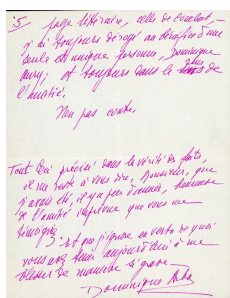 :5 page littéraire, celle de combat, –
j'ai toujours désigné au
seule et unique personne, Dominique
Aury; et toujours dans le sens de
l'amitié.
Non pas contre.
Tout ceci précisé dans la vérité des faits,
il me reste à vous dire, Monsieur, que
j'avais été, il y a peu d'années,
de l'amitié imprévue que vous me
témoigniez.
J'ignore en vertu de quoi
vous avez tenu aujourd'hui à me
blesser de manière si grave.
Dominique